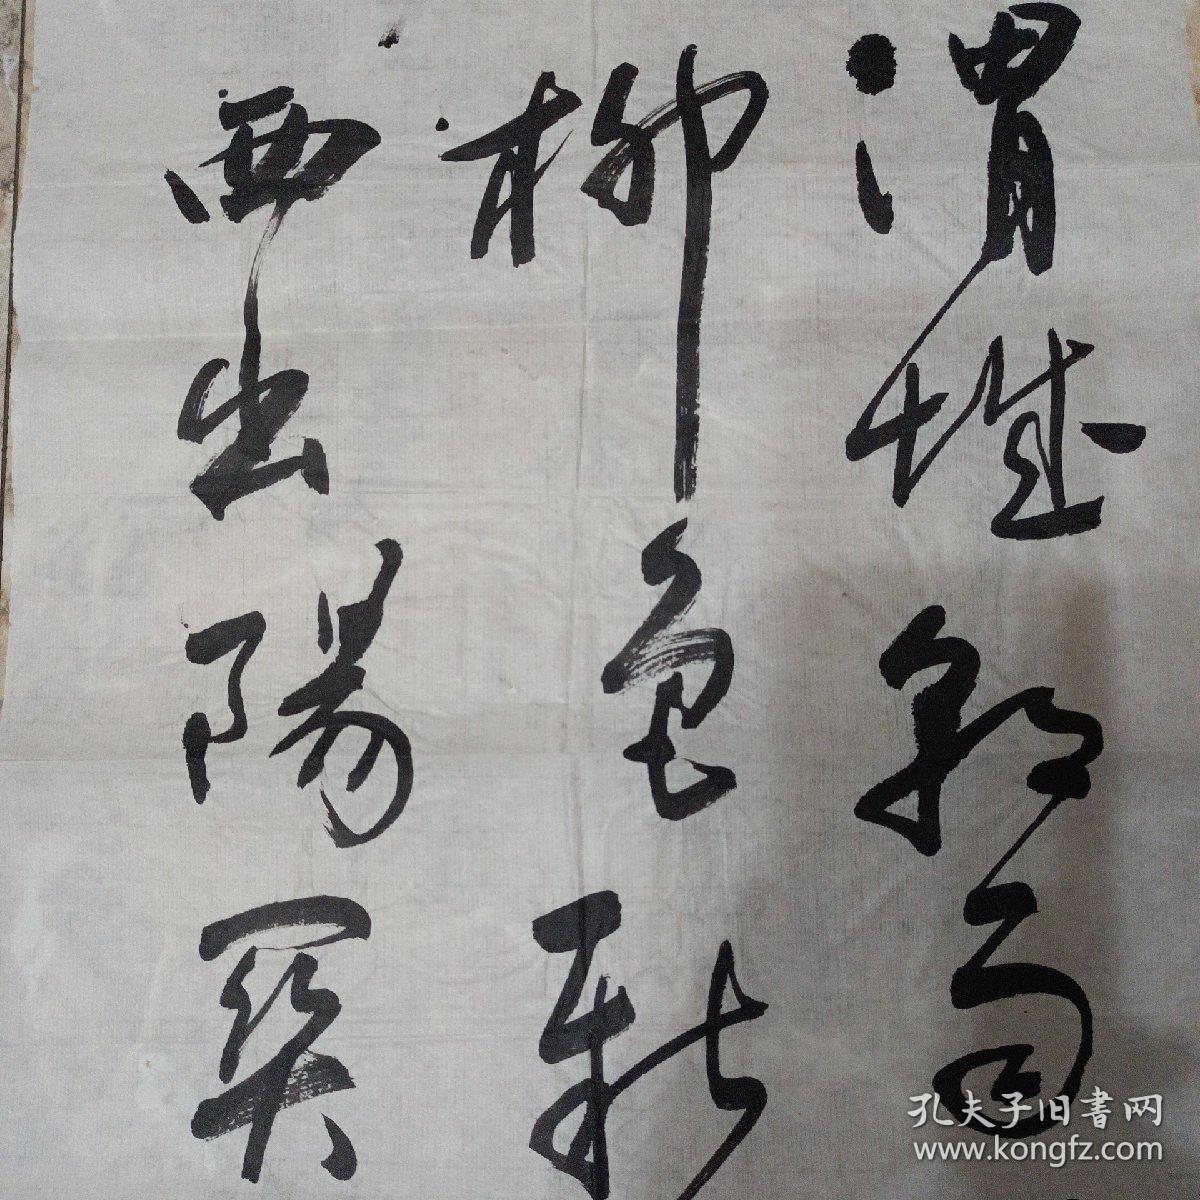 渭城朝雨
柳色新
西出陽关
孔夫子旧書网
www.kongfz.com